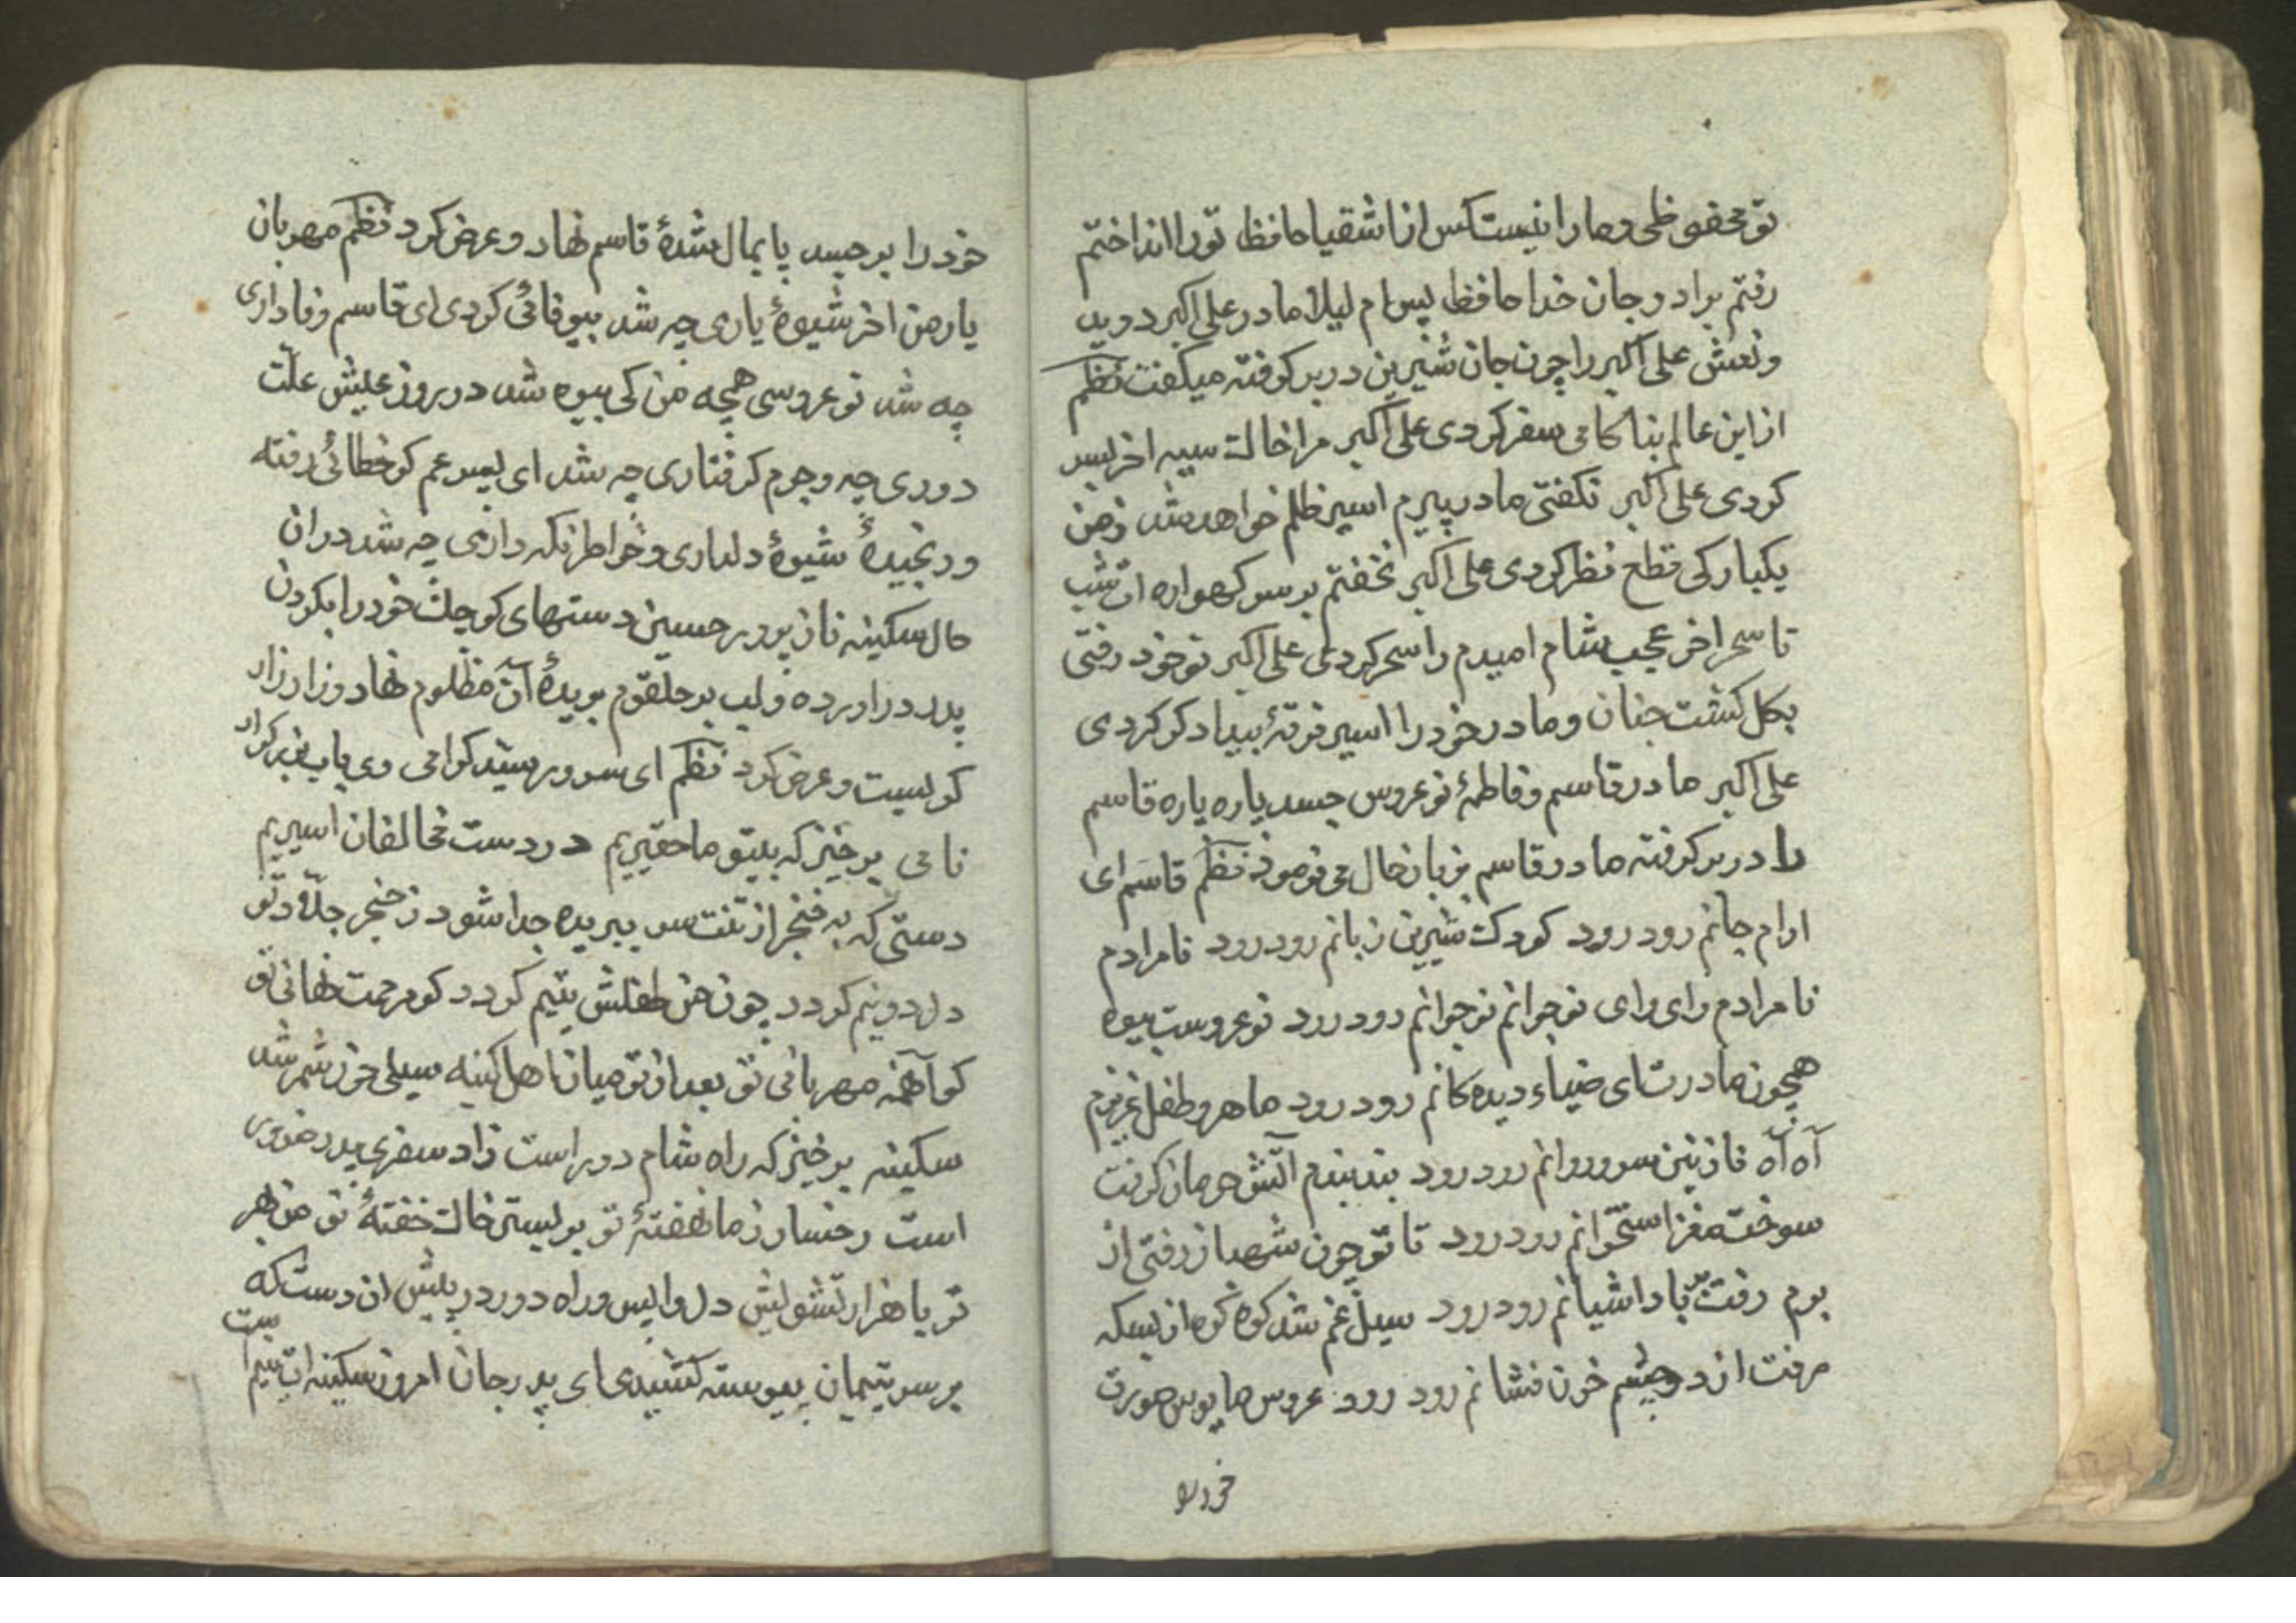 تو محفوظی و ما را نیست کس از اشقیا حافظ تو را انداختم
رفتم برادر جان خدا حافظ پس ام لیلا مادر علی اکبر دوید
و نعش علی اکبر را چون جان شیرین در بر کرفته میکفت نظم
از این عالم بناکامی سفر کردی علی اکبر مرا خاک سیه اخر بسر
کردی علی اکبر نکفتی مادر پیرم اسیر ظلم خواهد شد ز من
یکبارکی قطع نظر کردی علی اکبر نخفتم بر سر کهواره ات شب
تا سحر اخر عجب شام امیدم را سحر کردی علی اکبر تو خود رفتی
بکل کشت جنان و مادر خود را اسیر فرقهٔ بیدادکر کردی
علی اکبر مادر قاسم و فاطمهٔ نو عروس جسد پاره پاره قاسم
را در بر کرفته مادر قاسم بزبان حال می فرمود نظم قاسم ای
ارام جانم رود رود کودک شیرین زبانم رود رود نامرادم
نامرادم وای وای نوجوانم نوجوانم رود رود نو عروست بیوه
همچون مادرت ای ضیاء دیده کانم رود رود ماهرو طفل عزیزم
آه آه نازنین سرو روانم رود رود بند بندم آتش حرمان کرفت
سوخت مغز استخوانم رود رود تا تو چون شهباز رفتی از
برم رفت بر باد اشیانم رود رود سیل غم شد کوه کوه از بسکه
رفت از دو چشم خون فشانم رود رود عروس مایوس صورت
خود را
خود را بر جسد پایمال شدهٔ قاسم نهاد و عرض کرد نظم مهربان
یار من اخر شیوهٔ یاری چه شد بیوفائی کردی ای قاسم وفاداری
چه شد نو عروسی همچه من کی بیوه شد در روز عیش علّت
دوری چه و جرم کرفتاری چه شد ای پسر عم کو خطائی رفته
و رنجیدهٔ شیوهٔ دلداری و خواطر نکه داری چه شد در ان
حال سکینه ناز پرور حسین دستهای کوچک خود را بکردن
پدر در اورده و لب بر حلقوم بریدهٔ آن مظلوم نهاد و زار زار
کریست و عرض کرد نظم ای سرور سیّد کرامی وی باب بزرکوار
نامی برخیز که بیتو ما حقیریم در دست مخالفان اسیریم
دستی که به خنجر از تنت سر ببریده جدا شود ز خنجر جلاد تو
دل دو نیم کردد چون من طفلش یتیم کردد کو مرحمت نهانی تو
کو آنهمه مهربانی تو بعد از تو میان اهل کینه سیلی خور شمر شد
سکینه برخیز که راه شام دور است زاد سفری پدر ضروری
است رخسار ز ما نهفتهٔ تو بر بستر خاک خفتهٔ تو من بهر
تو با هزار تشویش دل واپس و راه دور در پیش ان دست که
بر سر یتیمان پیوسته کشیدی ای پدر جان امروز سکینه ات یتیم
است